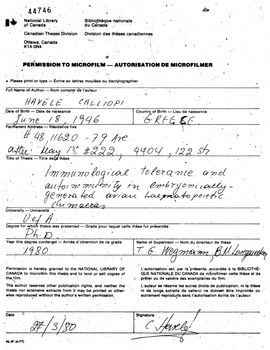 44746
National Library of Canada
Bibliothèque nationale du Canada
Canadian Theses Division
Division des thèses canadiennes
Ottawa, Canada
K1A 0N4
PERMISSION TO MICROFILM — AUTORISATION DE MICROFILMER
• Please print or type — Écrire en lettres moulées ou dactylographier
Full Name of Author — Nom complet de l'auteur
HAVELE CALLIOPI
Date of Birth — Date de naissance
Country of Birth — Lieu de naissance
June 18, 1946
GREECE
Permanent Address — Résidence fixe
# 48, 11620 - 79 Ave
after May 1st #222, 4404, 122 St
Title of Thesis — Titre de la thèse
Immunological tolerance and
autoimmunity in embryonically-
generated avian haematopoietic
chimaeras
University — Université
U of A
Degree for which thesis was presented — Grade pour lequel cette thèse fut présentée
Ph.D
Year this degree conferred — Année d'obtention de ce grade
Name of Supervisor — Nom du directeur de thèse
1980
T E Wegmann B.M. Longenecker
Permission is hereby granted to the NATIONAL LIBRARY OF
CANADA to microfilm this thesis and to lend or sell copies of
the film.
L'autorisation est, par la présente, accordée à la BIBLIOTHÈ-
QUE NATIONALE DU CANADA de microfilmer cette thèse et de
prêter ou de vendre des exemplaires du film.
The author reserves other publication rights, and neither the
thesis nor extensive extracts from it may be printed or other-
wise reproduced without the author's written permission.
L'auteur se réserve les autres droits de publication; ni la thèse
ni de longs extraits de celle-ci ne doivent être imprimés ou
autrement reproduits sans l'autorisation écrite de l'auteur.
Date
Signature
27/3/80
C. Havele